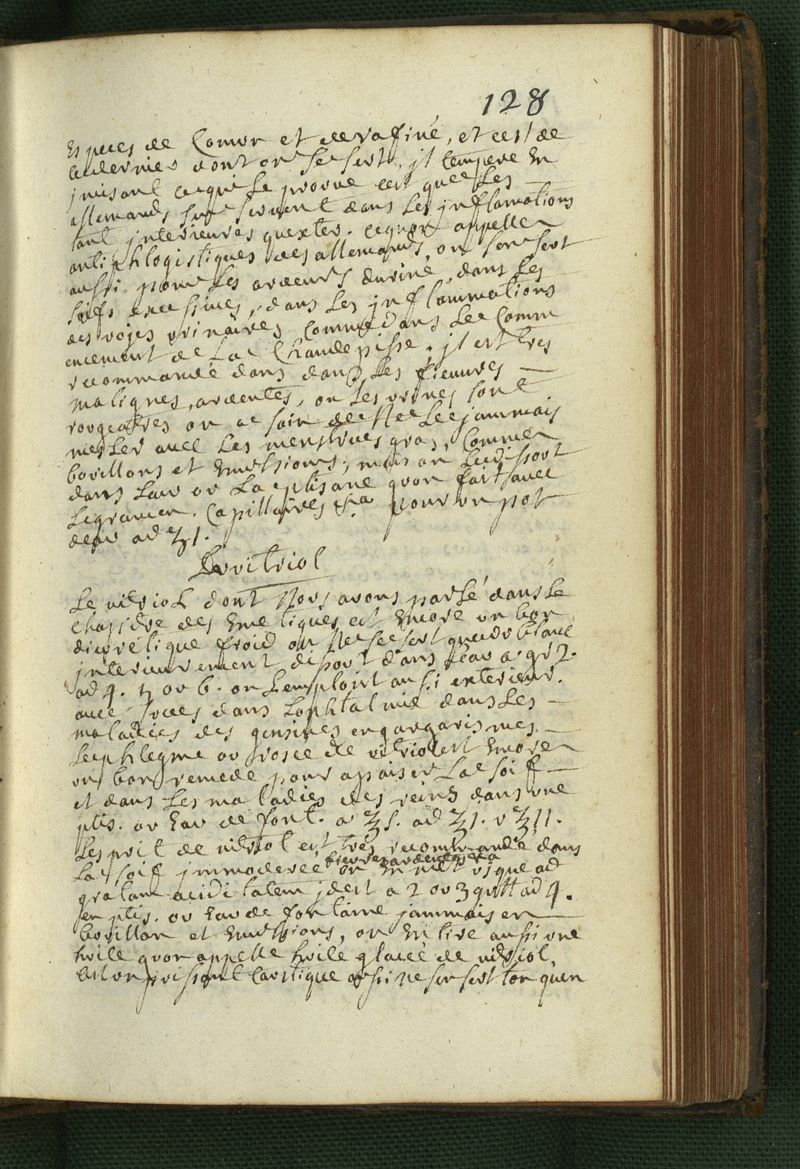 128
Espices de Comun et de rafiné, et cest de
ce dernier dont on se sert, jl tempere en
puisant ce qui le prouve cest que les
allemands sen servent dans les jnflamations
tant jnterieures qu'exter. ce quon appelle
antiphlogistiques des allemands, on sen sert
aussi pour les ardeurs durine, dans les
soifs excessives, dans les jnflammations
des voyes urinaires, comme dans le comm
encement de la Chaudepisse. jl est tres
recommandé dans dans les fieuvres
malignes, ardentes, ou les urines sont
rougeatres on a soin de ne le jammais
mesler avec les menstrues gras, comme
bouillons et Emulsions, mais on le dissout
dans lau ou la ptisane quon fait avec
le gramen. Capillaires &ca pour un pot
deau ad ʒ1.
Du vitriol
Le vitriol dont Nous avons parlé dans le
chapitre des Emetiques est encore un bon
diuretique froid on Ne se sert que du blanc
jnterieurement, dissout dans leau a gr 2.
ad 4. 5 ou 6. on lemploit aussi exterieur.
avec succes dans lophtalmie dans les
maladies des gensives en gargarismes.
Le phlegme ou rosée de vitriol est encore
un bon remede pour apaiser la soif
et dans les maladies des reins dans une
ptis. ou Eau de font. a ℥s. ad ℥1. v ℥11.
Lesprit de vitriol est tres recommandé dans
la soif jmmoderée fieuvre ardente &ca on en met jusque ad
gratam aciditatem jdest a 2 ou 3 gutt ad 4.
en ptis. ou Eau de fontaine jammais en
bouillon et Emulsions, on en tire aussi une
huile quon appelle huile glacée de vitriol,
cest un puissant Caustique ossi ne sen sert ton quen